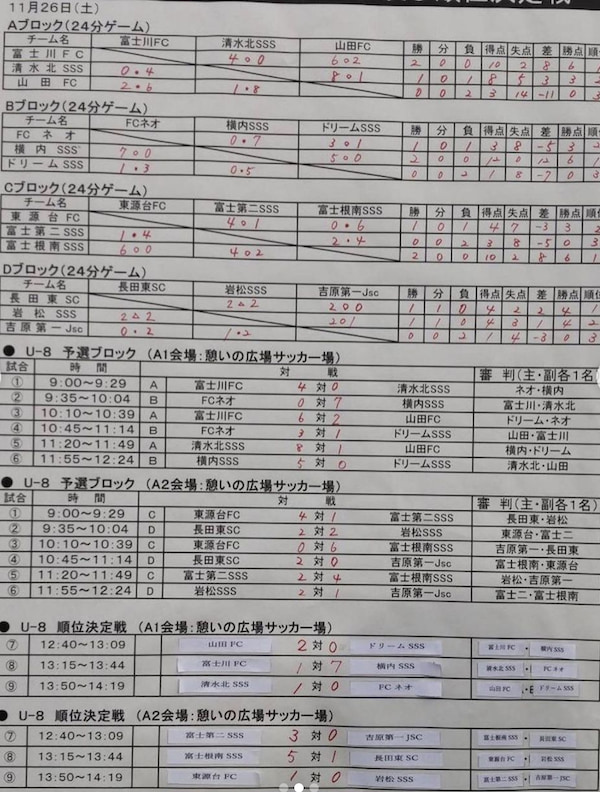 11月26日(土)
Aブロック(24分ゲーム)
チーム名 富士川FC 清水北SSS 山田FC 勝 分 負 得点 失点 差 勝点
富士川FC 4○0 6○2 2 0 0 10 2 8 6
清水北 SSS 0●4 8○1 1 0 1 8 5 3 3
山田 FC 2●6 1●8 0 0 2 3 14 -11 0
Bブロック(24分ゲーム)
チーム名 FCネオ 横内SSS ドリームSSS 勝 分 負 得点 失点 差 勝点
FCネオ 0●7 3○1 1 0 1 3 8 -5 3
横内 SSS 7○0 5○0 2 0 0 12 0 12 6
ドリームSSS 1●3 0●5 0 0 2 1 8 -7 0
Cブロック(24分ゲーム)
チーム名 東源台FC 富士第二SSS 富士根南SSS 勝 分 負 得点 失点 差 勝点 順位
東源台 FC 4○1 0●6 1 0 1 4 7 -3 3
富士第二SSS 1●4 2●4 0 0 2 3 8 -5 0
富士根南SSS 6○0 4○2 2 0 0 10 2 8 6
Dブロック(24分ゲーム)
チーム名 長田東SC 岩松SSS 吉原第一Jsc 勝 分 負 得点 失点 差 勝点 順位
長田東 SC 2△2 2○0 1 1 0 4 2 2 4
岩松 SSS 2△2 2○1 1 1 0 4 3 1 4
吉原第一Jsc 0●2 1●2 0 0 2 1 4 -3 0
● U-8 予選ブロック (A1会場:憩いの広場サッカー場)
試合 時間 対戦 審判(主・副各1名)
① 9:00～9:29 A 富士川FC 4 対 0 清水北SSS ネオ・横内
② 9:35～10:04 B FCネオ 0 対 7 横内SSS 富士川・清水北
③ 10:10～10:39 A 富士川FC 6 対 2 山田FC ドリーム・ネオ
④ 10:45～11:14 B FCネオ 3 対 1 ドリームSSS 山田・富士川
⑤ 11:20～11:49 A 清水北SSS 8 対 1 山田FC 横内・ドリーム
⑥ 11:55～12:24 B 横内SSS 5 対 0 ドリームSSS 清水北・山田
● U-8 予選ブロック (A2会場:憩いの広場サッカー場)
試合 時間 対戦 審判(主・副各1名)
① 9:00～9:29 C 東源台FC 4 対 1 富士第二SSS 長田東・岩松
② 9:35～10:04 D 長田東SC 2 対 2 岩松SSS 東源台・富士二
③ 10:10～10:39 C 東源台FC 0 対 6 富士根南SSS 吉原第一・長田東
④ 10:45～11:14 D 長田東SC 2 対 0 吉原第一Jsc 富士根南・東源台
⑤ 11:20～11:49 C 富士第二SSS 2 対 4 富士根南SSS 岩松・吉原第一
⑥ 11:55～12:24 D 岩松SSS 2 対 1 吉原第一Jsc 富士二・富士根南
● U-8 順位決定戦 (A1会場:憩いの広場サッカー場)
⑦ 12:40～13:09 山田 FC 2 対 0 ドリーム SSS 富士川 FC ・ 横内 SSS
⑧ 13:15～13:44 富士川 FC 1 対 7 横内 SSS 清水北 SSS ・ FC ネオ
⑨ 13:50～14:19 清水北 SSS 1 対 0 FC ネオ 山田 FC ・ ドリーム SSS
● U-8 順位決定戦 (A2会場:憩いの広場サッカー場)
⑦ 12:40～13:09 富士第二 SSS 3 対 0 吉原第一 JSC 富士根南 SSS ・ 長田東 SC
⑧ 13:15～13:44 富士根南 SSS 5 対 1 長田東 SC 東源台 FC ・ 岩松 SSS
⑨ 13:50～14:19 東源台 FC 1 対 0 岩松 SSS 富士第二 SSS ・ 吉原第一 JSC